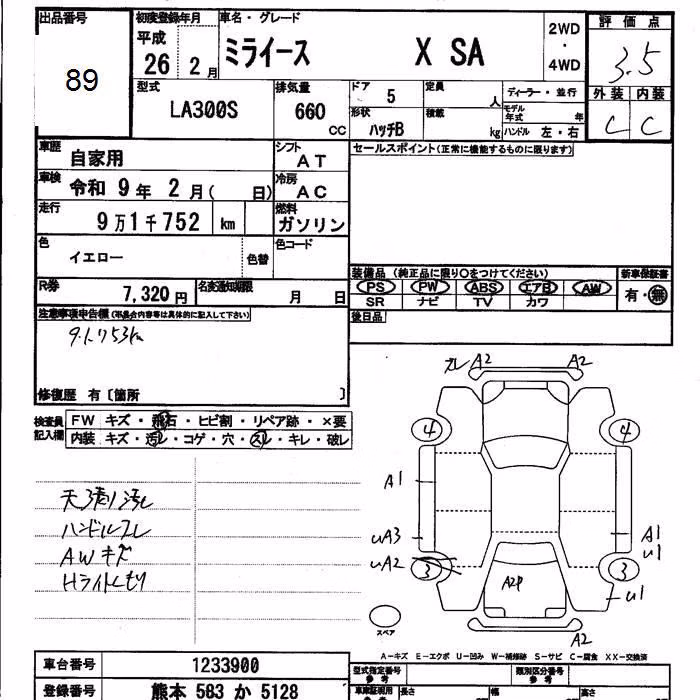 出品番号 初度登録年月 車名・グレード 評価点
89 平成 26 2月 ミライース X SA 2WD・4WD 3.5
型式 LA300S 排気量 660 CC ドア 5 定員 人 ディーラー・並行 外装 内装
形状 ハッチB 積載 kg モデル年式 年 ハンドル 左・右 C C
車歴 自家用 シフト AT セールスポイント(正常に機能するものに限ります)
車検 令和 9年 2月( 日) 冷房 AC
走行 9万1千752 km 燃料 ガソリン
色 イエロー 色替 色コード
装備品(純正品に限り○をつけてください) 新車保証書
R券 7,320円 名変通知期限 月 日 PS PW ABS エアB AW 有・無
SR ナビ TV カワ
注意事項申告欄(不具合内容等は具体的に記入して下さい) 後日品
9.1.753km
修復歴 有〔箇所 〕
検査員記入欄 FW キズ・飛石・ヒビ割・リペア跡・×要
内装 キズ・汚レ・コゲ・穴・スレ・キレ・破レ
スレ A2 A2
4 4
A1
天張り汚れ
ハンドルスレ uA3 A1
u1
AWキズ uA2 3 3
Hライトくもり A2P u1
スペア A2
A-キズ E-エクボ U-凹み W-補修跡 S-サビ C-腐食 XX-交換済
車台番号 1233900 型式指定番号 参考 類別区分番号 参考
登録番号 熊本 583 か 5128 長さ 幅 高さ